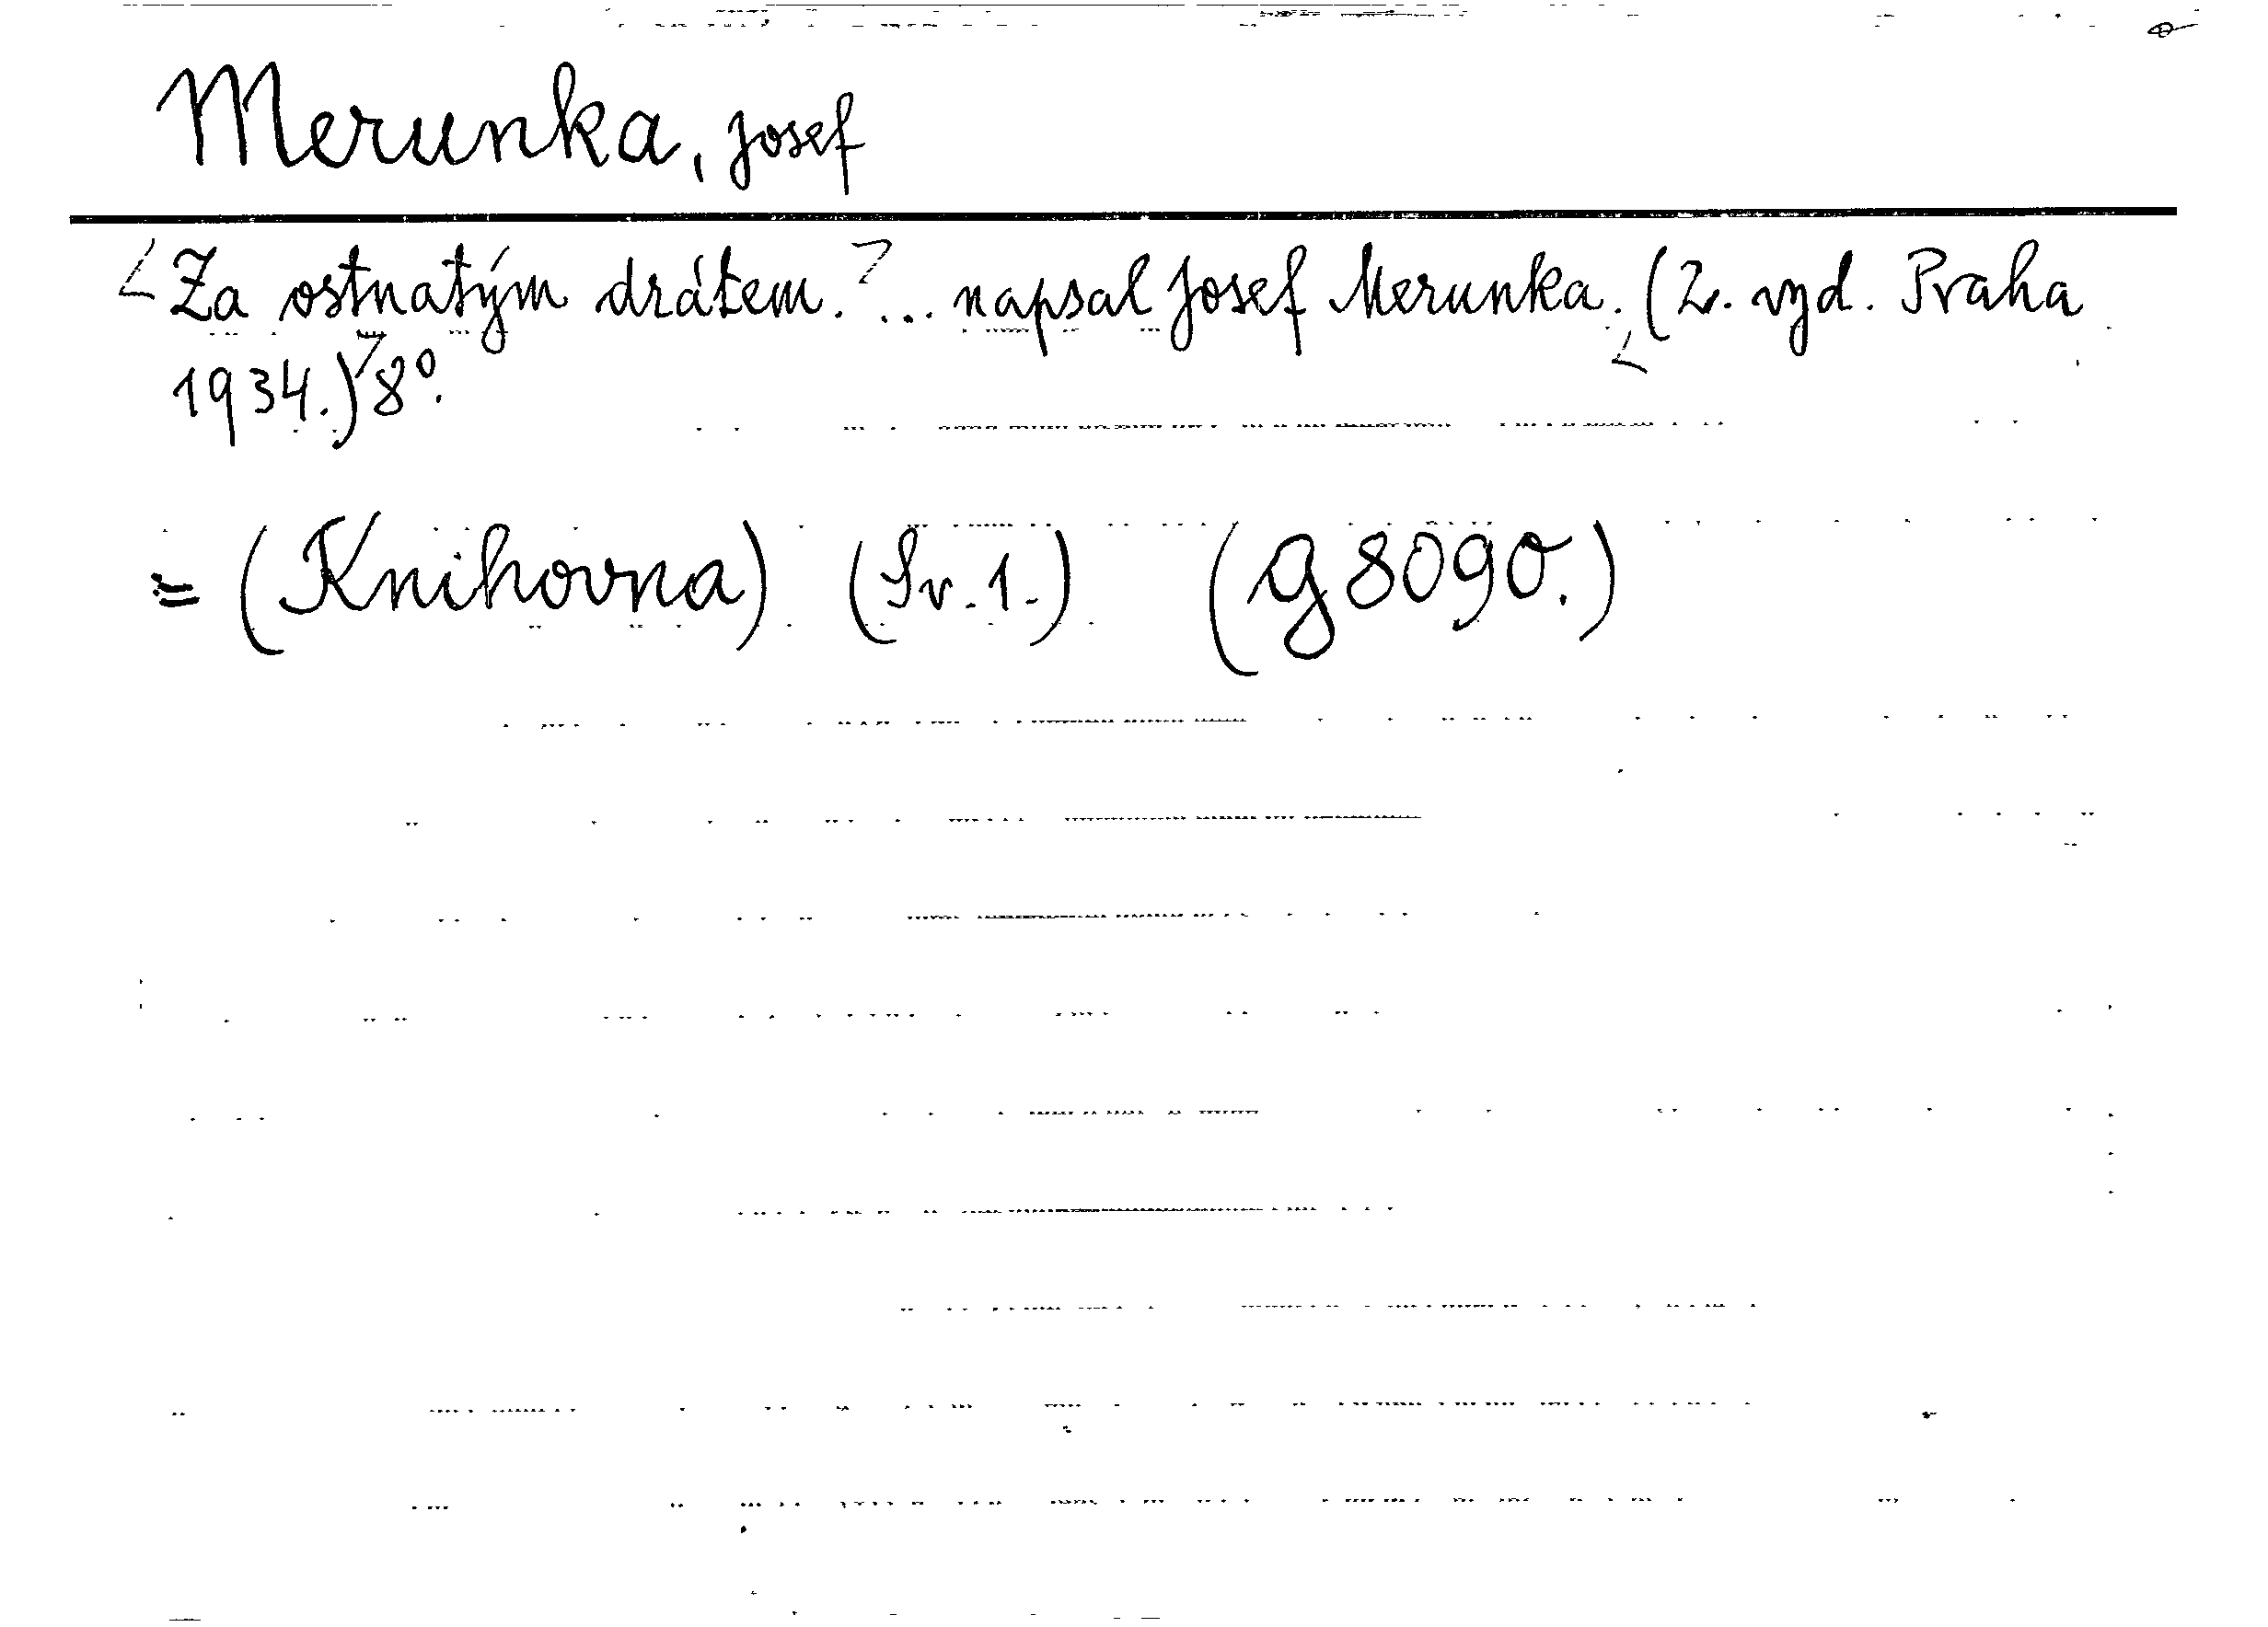 Merunka, Josef
<Za ostnatým drátem.>... napsal Josef Merunka. <(2. vyd. Praha
1934.)> 8°.
= (Knihovna) (Sv. 1.) (g 8090.)